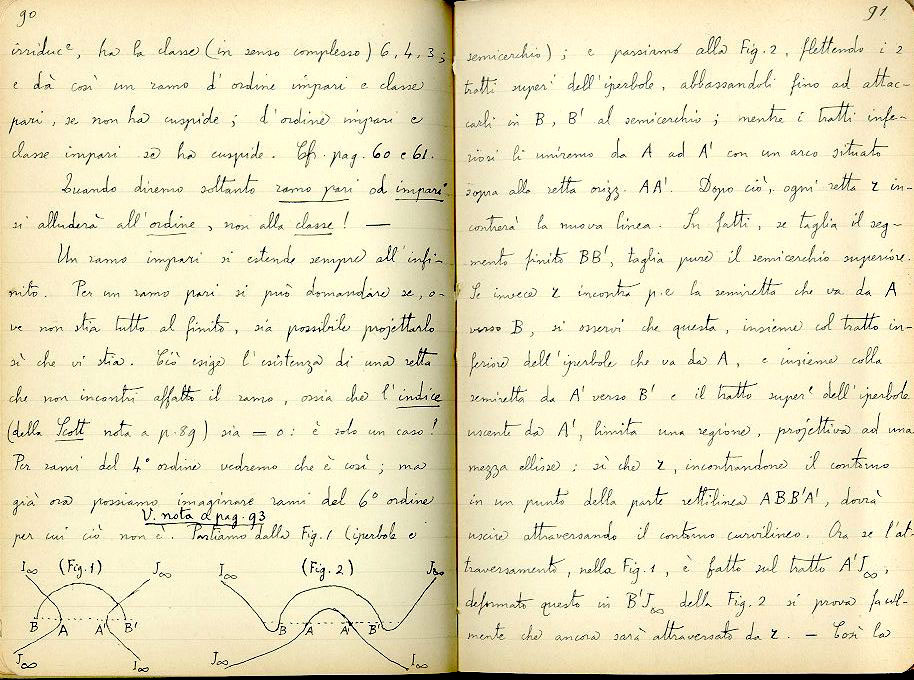 90
irriduc^e, ha la classe (in senso complesso) 6, 4, 3;
e dà così un ramo d'ordine impari e classe
pari, se non ha cuspide; d'ordine impari e
classe impari se ha cuspide. Cfr. pag. 60 e 61.
Quando diremo soltanto ramo pari od impari
si alluderà all'ordine, non alla classe! —
Un ramo impari si estende sempre all'infi-
nito. Per un ramo pari si può domandare se, o-
ve non stia tutto al finito, sia possibile projettarlo
sì che vi stia. Ciò esige l'esistenza di una retta
che non incontri affatto il ramo, ossia che l'indice
(della Scott nota a p. 89) sia = 0: è solo un caso!
Per rami del 4° ordine vedremo che è così; ma
già ora possiamo imaginare rami del 6° ordine
V. nota a pag. 93
per cui ciò non è. Partiamo dalla Fig. 1 (iperbole e
I∞ (Fig. 1) J∞ I∞ (Fig. 2) J∞
B A A' B' B A A' B'
J∞ I∞ J∞ I∞
91
semicerchio); e passiamo alla Fig. 2, flettendo i 2
tratti super^i dell'iperbole, abbassandoli fino ad attac-
carli in B, B' al semicerchio; mentre i tratti infe-
riori li uniremo da A ad A' con un arco situato
sopra alla retta orizz. AA'. Dopo ciò, ogni retta r in-
contrerà la nuova linea. In fatti, se taglia il seg-
mento finito BB', taglia pure il semicerchio superiore.
Se invece r incontra p. e. la semiretta che va da A
verso B, si osservi che questa, insieme col tratto in-
feriore dell'iperbole che va da A, e insieme colla
semiretta da A' verso B' e il tratto super^e dell'iperbole
uscente da A', limita una regione, projettiva ad una
mezza ellisse; sì che r, incontrandone il contorno
in un punto della parte rettilinea ABB'A', dovrà
uscire attraversando il contorno curvilineo. Ora se l'at-
traversamento, nella Fig. 1, è fatto sul tratto A'J∞,
deformato questo in B'J∞ della Fig. 2 si prova facil-
mente che ancora sarà attraversato da r. — Così la